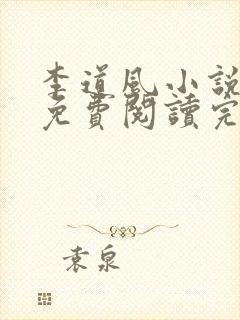 李道風小說
免費閱讀完
袁泉